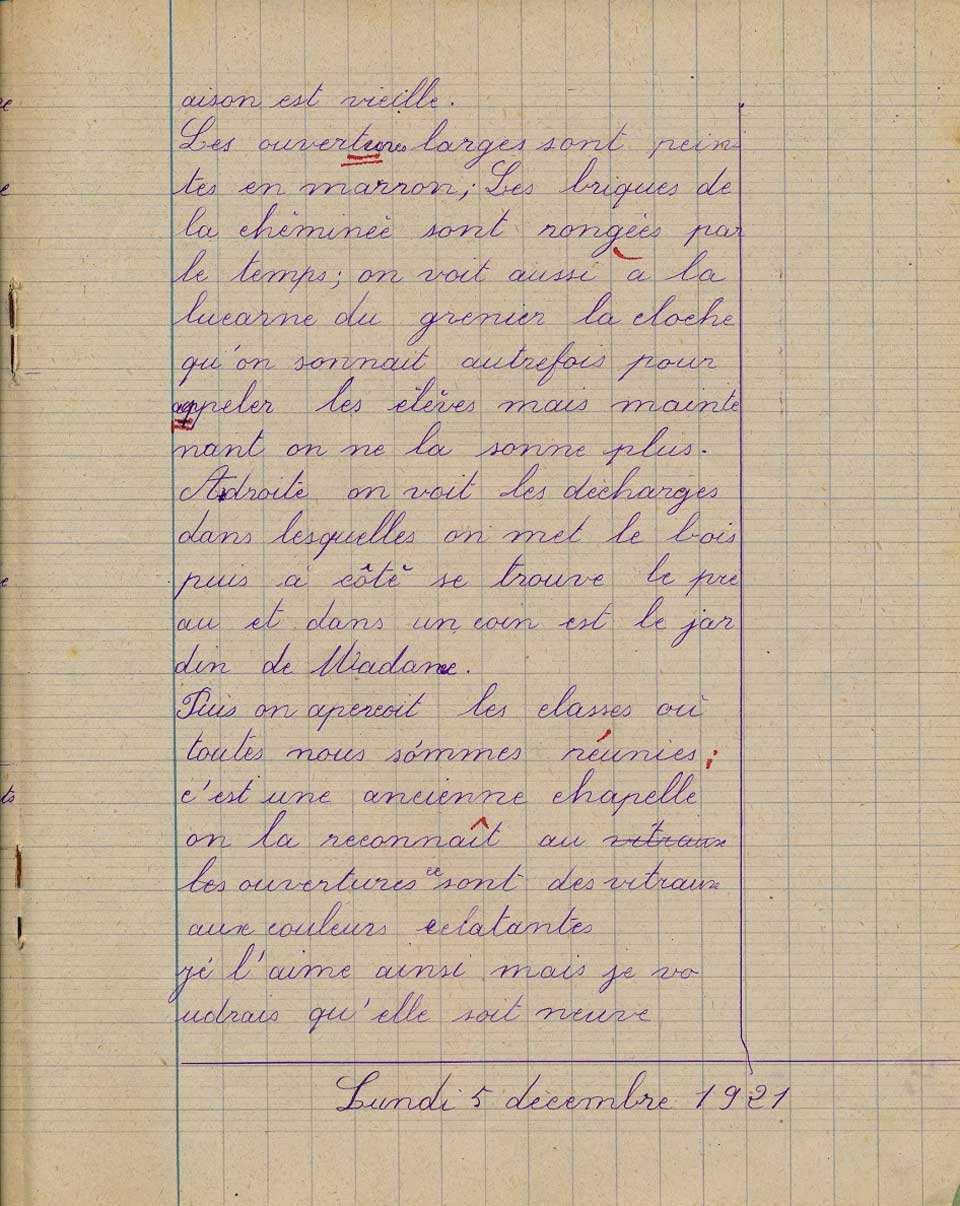 aison est vieille.
Les ouvertures larges sont pein-
tes en marron; Les briques de
la chéminée sont rongées par
le temps; on voit aussi à la
lucarne du grenier la cloche
qu'on sonnait autrefois pour
appeler les élèves mais mainte
nant on ne la sonne plus.
A droite on voit les décharges
dans lesquelles on met le bois
puis a côté se trouve le pré
au et dans un coin est le jar
din de Madame.
Puis on apercoit les classes où
toutes nous sommes réunies;
c'est une ancienne chapelle
on la reconnaît au vitraux
les ouvertures ce sont des vitraux
aux couleurs eclatantes
jé l'aime ainsi mais je vo
udrais qu'elle soit neuve
Lundi 5 décembre 1921